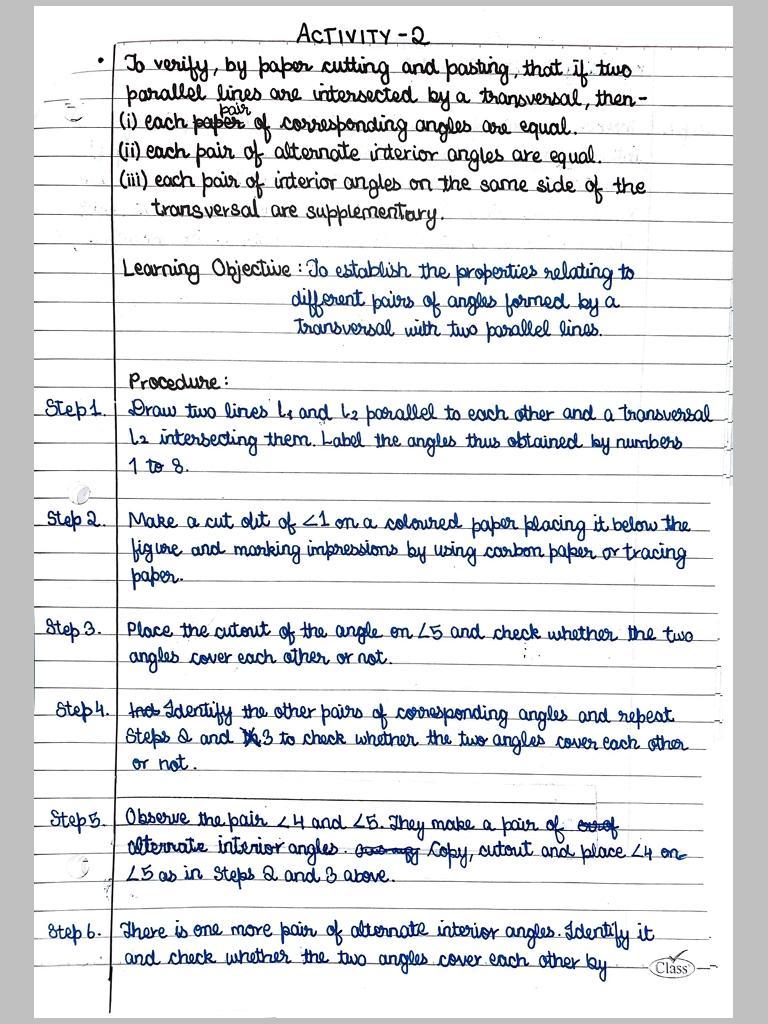 ACTIVITY-2
• To verify, by paper cutting and pasting, that if two
parallel lines are intersected by a transversal, then-
pair
(i) each paper of corresponding angles are equal.
(ii) each pair of alternate interior angles are equal.
(iii) each pair of interior angles on the same side of the
transversal are supplementary.
Learning Objective : To establish the properties relating to
different pairs of angles formed by a
transversal with two parallel lines.
Procedure :
Step 1. Draw two lines l₁ and l₂ parallel to each other and a transversal
l₂ intersecting them. Label the angles thus obtained by numbers
1 to 8.
Step 2. Make a cut out of ∠1 on a coloured paper placing it below the
figure and marking impressions by using carbon paper or tracing
paper.
Step 3. Place the cutout of the angle on ∠5 and check whether the two
angles cover each other or not.
Step 4. Identify the other pairs of corresponding angles and repeat
Steps 2 and 3 to check whether the two angles cover each other
or not.
Step 5. Observe the pair ∠4 and ∠5. They make a pair of
alternate interior angles. Copy, cutout and place ∠4 on
∠5 as in Steps 2 and 3 above.
Step 6. There is one more pair of alternate interior angles. Identify it
and check whether the two angles cover each other by
Class